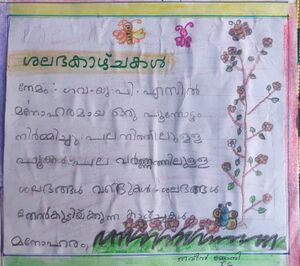 ശലഭകാഴ്ചകൾ
നേമം ഗവ. യു. പി. എസിൽ
മനോഹരമായ ഒരു പൂന്തോട്ടം
നിർമ്മിച്ചു. പല നിറത്തിലുള്ള
പൂക്കൾ പല വർണ്ണത്തിലുള്ള
ശലഭങ്ങൾ വണ്ടുകൾ ശലഭങ്ങൾ
തേൻകുടിയ്ക്കുന്ന കാഴ്ചകൾ
മനോഹരം,
നവീൻ